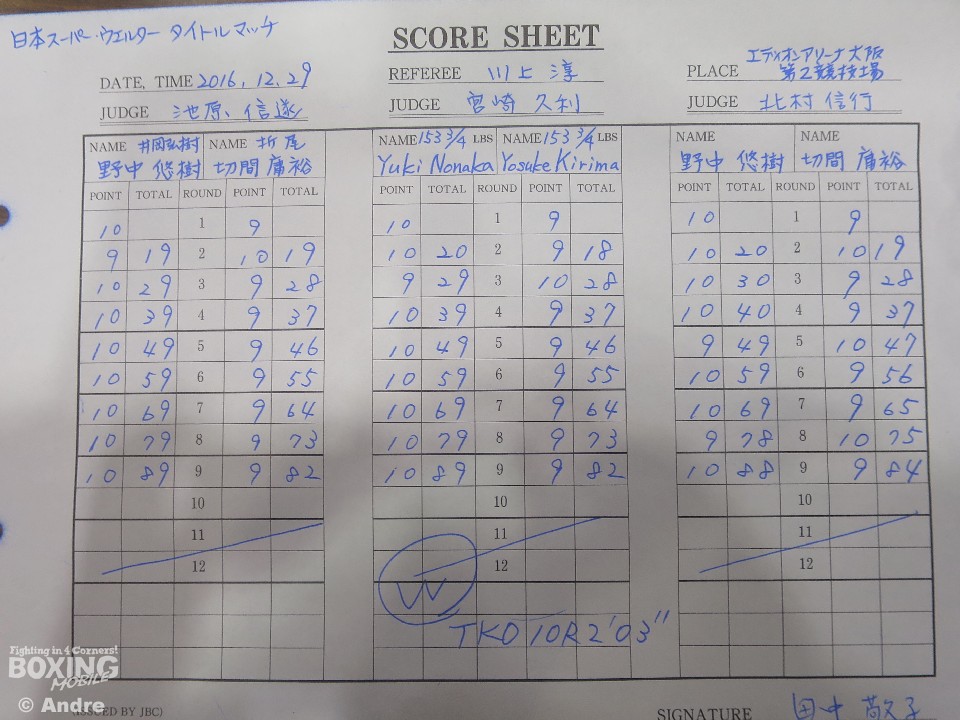 日本スーパー・ウェルター タイトルマッチ
SCORE SHEET
DATE, TIME 2016, 12. 29
REFEREE 川上 淳
PLACE エディオンアリーナ大阪
第2競技場
JUDGE 池原 信遂
JUDGE 宮崎 久利
JUDGE 北村 信行
NAME 井岡弘樹 NAME 折尾 NAME 153 3/4 LBS NAME 153 3/4 LBS NAME NAME
野中 悠樹 切間 庸裕 Yuki Nonaka Yosuke Kirima 野中 悠樹 切間 庸裕
POINT TOTAL ROUND POINT TOTAL POINT TOTAL ROUND POINT TOTAL POINT TOTAL ROUND POINT TOTAL
10 1 9 10 1 9 10 1 9
9 19 2 10 19 10 20 2 9 18 10 20 2 10 19
10 29 3 9 28 9 29 3 10 28 10 30 3 9 28
10 39 4 9 37 10 39 4 9 37 10 40 4 9 37
10 49 5 9 46 10 49 5 9 46 9 49 5 10 47
10 59 6 9 55 10 59 6 9 55 10 59 6 9 56
10 69 7 9 64 10 69 7 9 64 10 69 7 9 65
10 79 8 9 73 10 79 8 9 73 9 78 8 10 75
10 89 9 9 82 10 89 9 9 82 10 88 9 9 84
10 10 10
11 11 11
12 12 12
W
TKO 10R 2'03"
Fighting in 4 Corners!
BOXING
MOBILE
© Andre
(ISSUED BY JBC)
SIGNATURE 田中 敬子